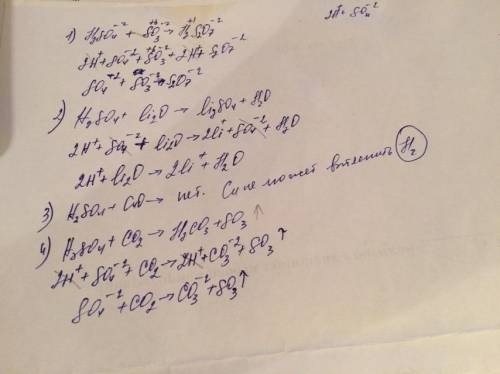 2H⁺ SO₄⁻²
1) H₂SO₄⁻² + SO₃⁻² → H₂S₂O₇⁻²
2H⁺ + SO₄⁻² + SO₃⁻² → 2H⁺ + S₂O₇⁻²
SO₄⁻² + SO₃⁻² → S₂O₇⁻²
2) H₂SO₄ + Li₂O → Li₂SO₄ + H₂O
2H⁺ + SO₄⁻² + Li₂O → 2Li⁺ + SO₄⁻² + H₂O
2H⁺ + Li₂O → 2Li⁺ + H₂O
3) H₂SO₄ + CuO → нет. Cu не может вытеснить H₂
4) H₂SO₄ + CO₂ → H₂CO₃ + SO₃ ↑
2H⁺ + SO₄⁻² + CO₂ → 2H⁺ + CO₃⁻² + SO₃ ↑
SO₄⁻² + CO₂ → CO₃⁻² + SO₃ ↑